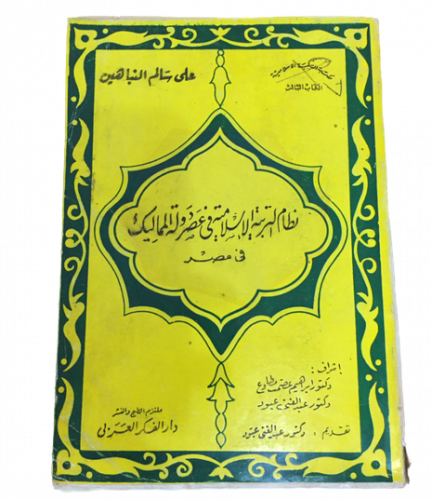 مكتبة التربية الإسلامية
الكتاب الثالث
على سالم النباهين
نظام التربية الإسلامية فى عصر دولة المماليك
فى مصر
إشراف :
دكتور إبراهيم عصمت مطاوع
دكتور عبد الغنى عبود
تقديم : دكتور عبد الغنى عبود
ملتزم الطبع والنشر
دار الفكر العربى